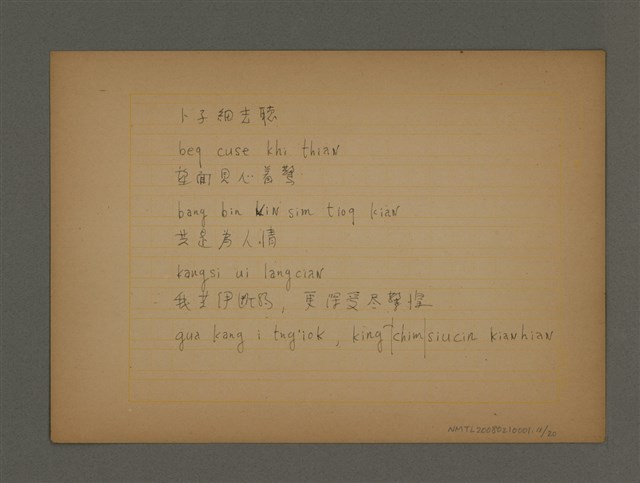 卜子細去聽
beq cuse khi thian
望面見心着驚
bang bin kin sim tioq kian
共是為人情
kangsi ui langcian
我共伊斷約，更深受尽驚惶
gua kang i tng'iok, king chim siucin kianhian
NMTL20050210001.11/20